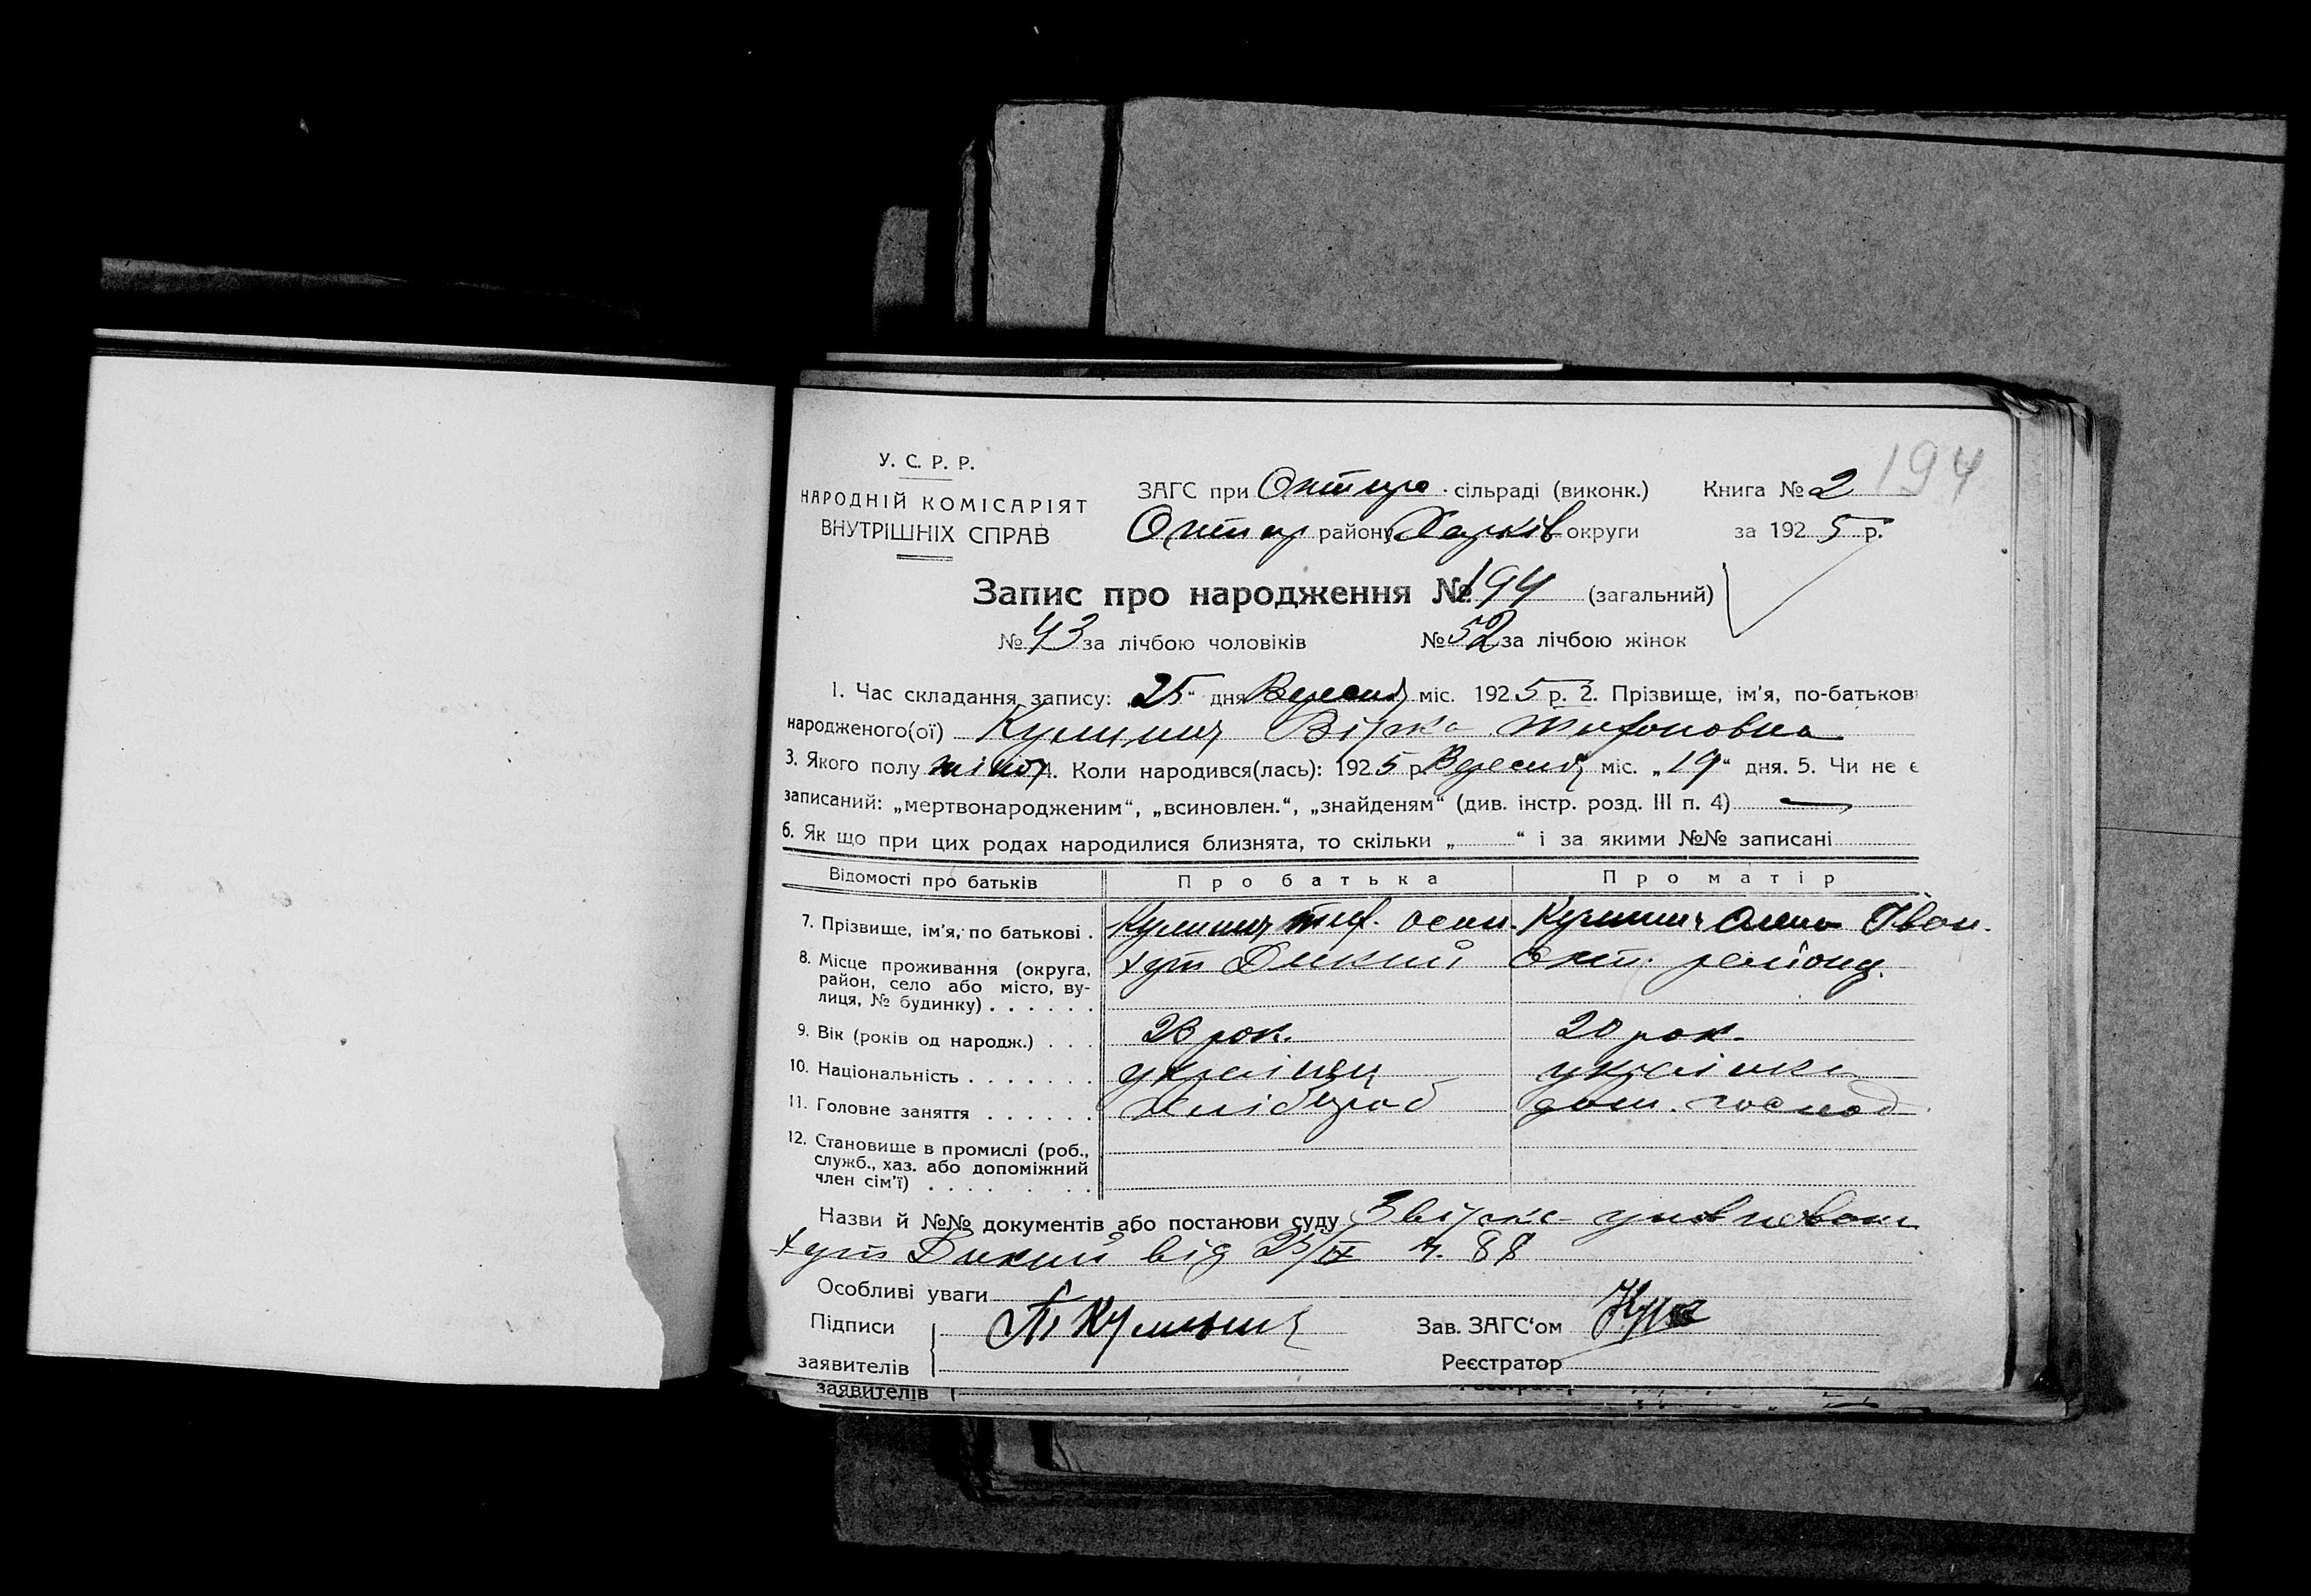 194
У. С. Р. Р.
НАРОДНІЙ КОМІСАРІЯТ
ВНУТРІШНІХ СПРАВ
ЗАГС при сільраді (виконк.) Книга № 2
району Харків округи за 1925 р.
Запис про народження № 194 (загальний)
№ 43 за лічбою чоловіків № 52 за лічбою жінок
1. Час складання запису: „25“ дня Вересня міс. 1925 р. 2. Прізвище, ім'я, по-батьков
народженого(ої) Кулинич Вірка
3. Якого полу жіноч 4. Коли народився(лась): 1925 р. Вересня міс. „19“ дня. 5. Чи не є
записаний: „мертвонародженим“, „всиновлен.“, „знайденям“ (див. інстр. розд. III п. 4) —
6. Як що при цих родах народилися близнята, то скільки „ “ і за якими №№ записані
Відомості про батьків Про батька Про матір
7. Прізвище, ім'я, по батькові . Кулинич Кулинич Олена Іван.
8. Місце проживання (округа, хут Дикий Окт. району.
район, село або місто, ву-
лиця, № будинку) . . . . . .
9. Вік (років од народж.) . . . рок. 20 рок.
10. Національність . . . . . . . українец українка
11. Головне заняття . . . . . . хлібороб дом. господ.
12. Становище в промислі (роб.,
служб., хаз. або допоміжний
член сім'ї) . . . . . . .
Назви й №№ документів або постанови суду
хут Дикий від 25/IX ч. 88
Особливі уваги
Підписи Кулинич Зав. ЗАГС'ом
заявителів Реєстратор
заявителів